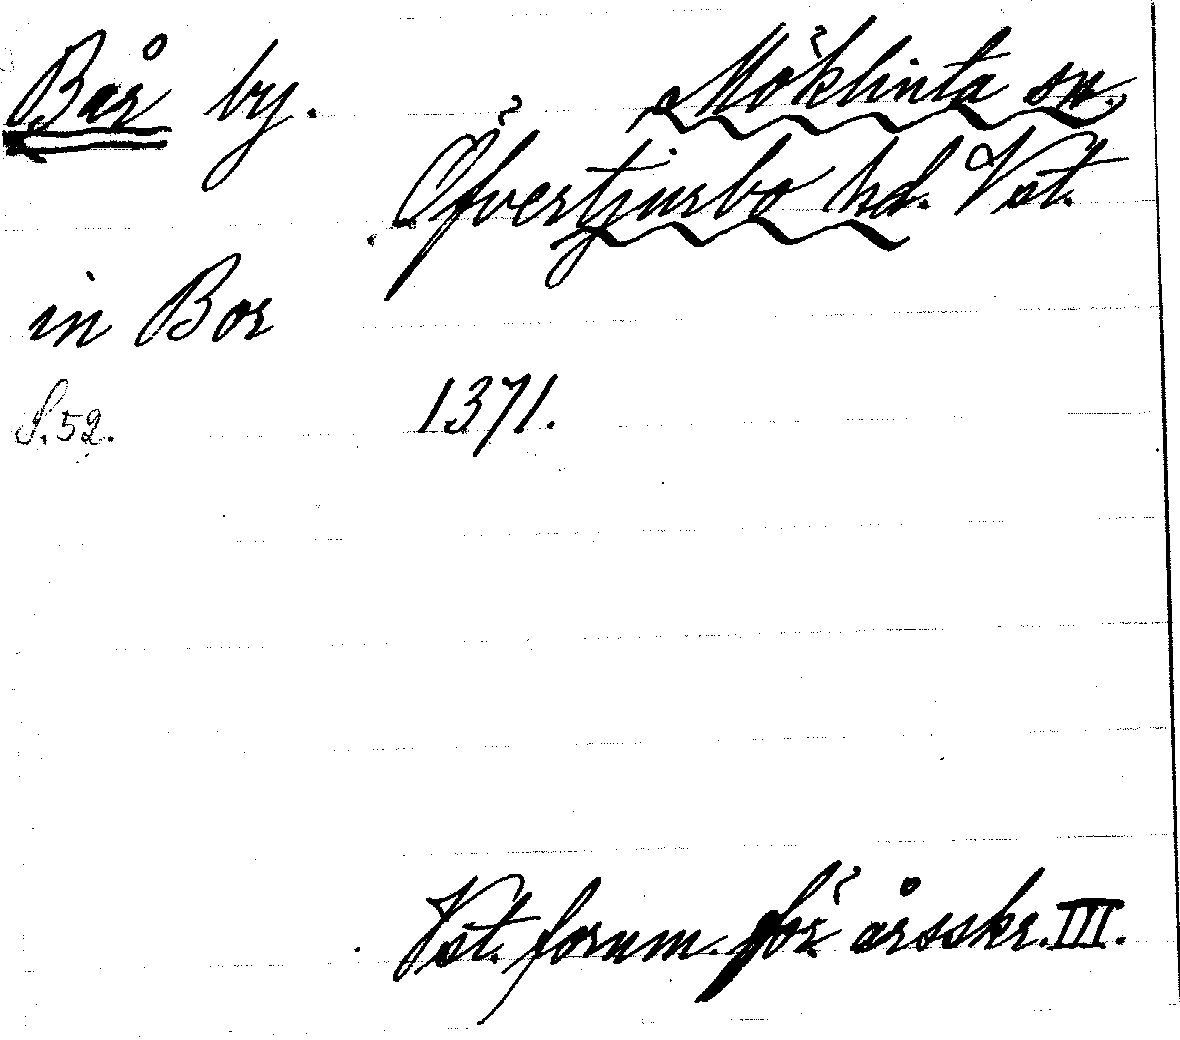 Bår by. Möklinta sn.
Öfvertjurbo hd. Vst.
in Bor
S. 52. 1371.
Vst. fornm. för. årsskr. III.